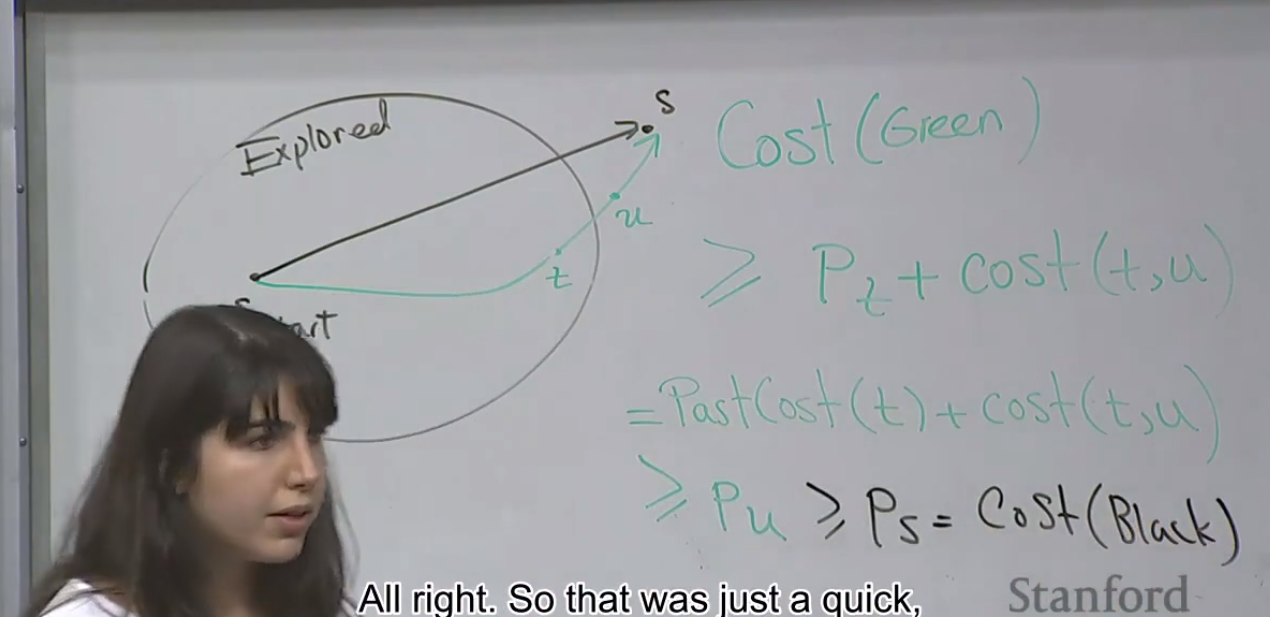 Explored
s
Cost (Green)
u
t
≥ Pt + cost (t,u)
= PastCost (t) + cost (t,u)
≥ Pu ≥ Ps = Cost (Black)
All right. So that was just a quick,
Stanford